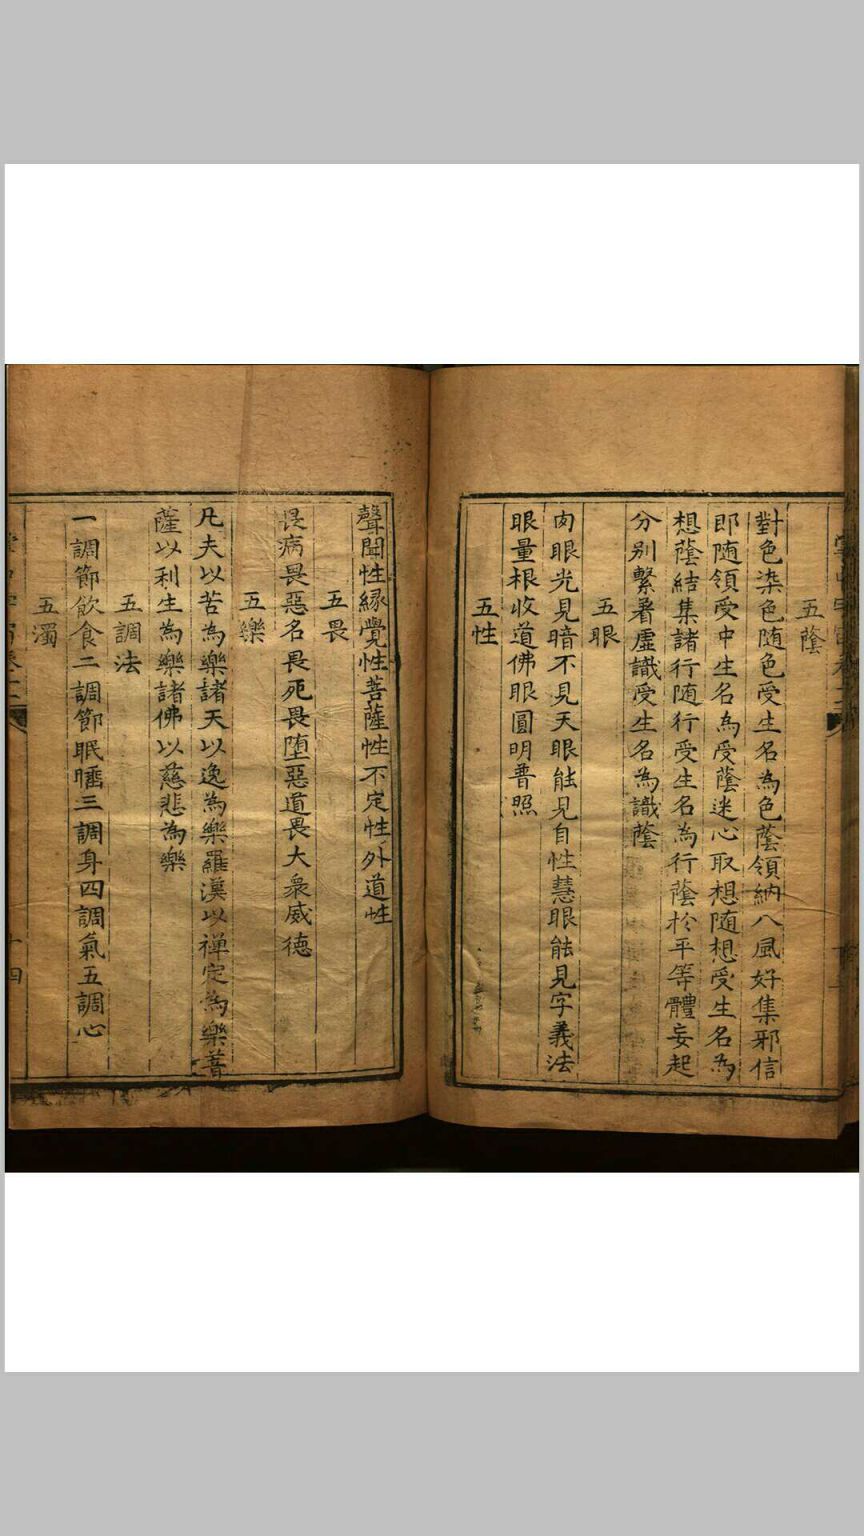 五蔭
對色染色随色受生名為色蔭領納八風好集邪信
即随領受中生名為受蔭迷心取想随想受生名為
想蔭結集諸行随行受生名為行蔭於平等體妄起
分别繫着虚識受生名為識蔭
五眼
肉眼光見暗不見天眼能見自性慧眼能見字義法
眼量根收道佛眼圓明普照
五性
聲聞性緣覺性菩薩性不定性外道性
五畏
畏病畏惡名畏死畏堕惡道畏大衆威德
五樂
凡夫以苦為樂諸天以逸為樂羅漢以禅定為樂菩
薩以利生為樂諸佛以慈悲為樂
五調法
一調節飲食二調節眠睡三調身四調氣五調心
五濁
十四